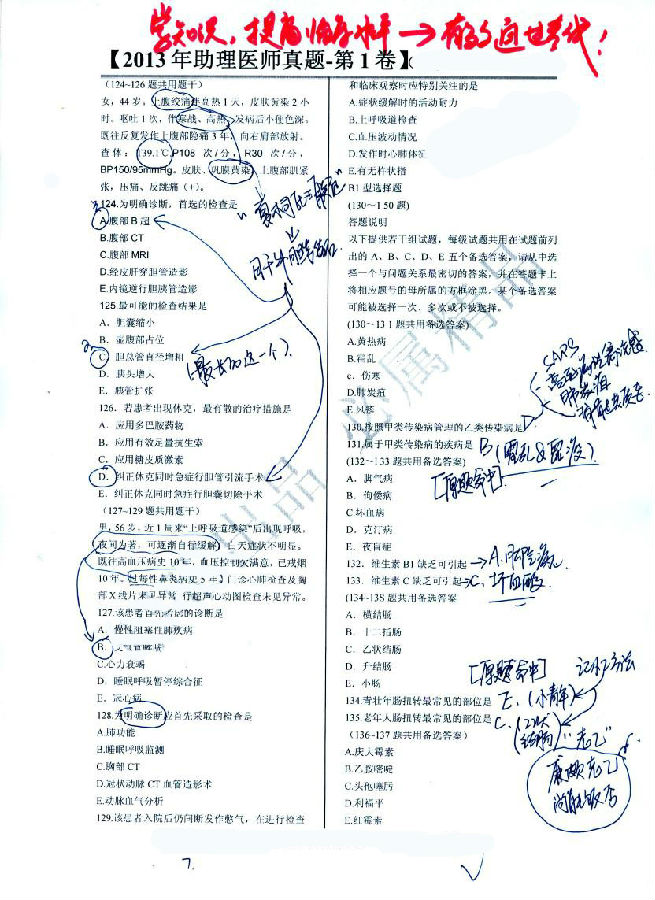 学知识,提高临床水平→有
【2013年助理医师真题-第1卷】
(124~126题共用题干)
女,44岁,上腹绞痛伴高热1天,皮肤黄染2小
时。呕吐1次,伴寒战、高热,发病后小便色深,
既往反复发作上腹部隐痛3年,向右肩部放射。
查体:T39.1℃,P108 次/分,R30 次/分,
BP150/95mmHg。皮肤、巩膜黄染,上腹部肌紧
张,压痛、反跳痛(+)。
124.为明确诊断,首选的检查是
A.腹部B超
B.腹部CT
C.腹部MRI
D.经皮肝穿胆管造影
E.内镜逆行胆胰管造影
125.最可能的检查结果是
A、胆囊缩小
B、壶腹部占位
C、胆总管直径增粗
D、胰头增大
E、胰管扩张
126、若患者出现休克,最有效的治疗措施是
A、应用多巴胺药物
B、应用有效足量抗生素
C、应用糖皮质激素
D、纠正休克同时急症行胆管引流手术
E、纠正休克同时急症行胆囊切除手术
(127~129题共用题干)
男,56岁,近1周来“上呼吸道感染”后出现呼吸,
夜间为著,可逐渐自行缓解,白天症状不明显。
既往高血压病史10年,血压控制欠满意,已戒烟
10年,过敏性鼻炎病史5年,门诊心肺检查及胸
部X线片未见异常 行超声心动图检查未见异常。
127.该患者首先考虑的诊断是
A、慢性阻塞性肺疾病
B、支气管哮喘
C.心力衰竭
D、睡眠呼吸暂停综合征
E、冠心病
128.为明确诊断应首先采取的检查是
A.肺功能
B.睡眠呼吸监测
C.胸部CT
D.冠状动脉CT血管造影术
E.动脉血气分析
129.该患者入院后仍间断发作憋气,在进行检查
和临床观察时应特别关注的是
A.症状缓解时的活动耐力
B.上呼吸道检查
C.血压波动情况
D.发作时心肺体征
E.有无杵状指
B1型选择题
(130~150题)
答题说明
以下提供若干组试题,每级试题共用在试题前列
出的A、B、C、D、E五个备选答案,请从中选
择一个与问题关系最密切的答案,并在答题卡上
将相应题号的母所属的方框涂黑。某个备选答案
可能被选择一次、多次或不被选择。
(130~131题共用备选答案)
A.黄热病
B.霍乱
c、伤寒
D.肺炭疽
E风疹
130.按照甲类传染病管理的乙类传染病是
131.属于甲类传染病的疾病是 B(霍乱&鼠疫)
(132~133题共用备选答案) [原题命中]
A、脚气病
B、佝偻病
C坏血病
D、克汀病
E、夜盲症
132、维生素B1缺乏可引起→A.脚气病
133、维生素C缺乏可引起→C.坏血病
(134-135题共用备选答案
A、横结肠
B、十二指肠
C、乙状结肠
D、升结肠
E、小肠
[原题命中] 记忆方法
134.青壮年肠扭转最常见的部位是 E.(小青年)
135.老年人肠扭转最常见的部位是 C.(乙状结肠)“老乙”
(136~137题共用备选答案)
A.庆大霉素
B.乙胺嘧啶
C.头孢噻肟
D.利福平
E.红霉素
SARS
肺炭疽
(最长的这一个)
廉颇老乙
尚能饭否
出品 必属精品
7.